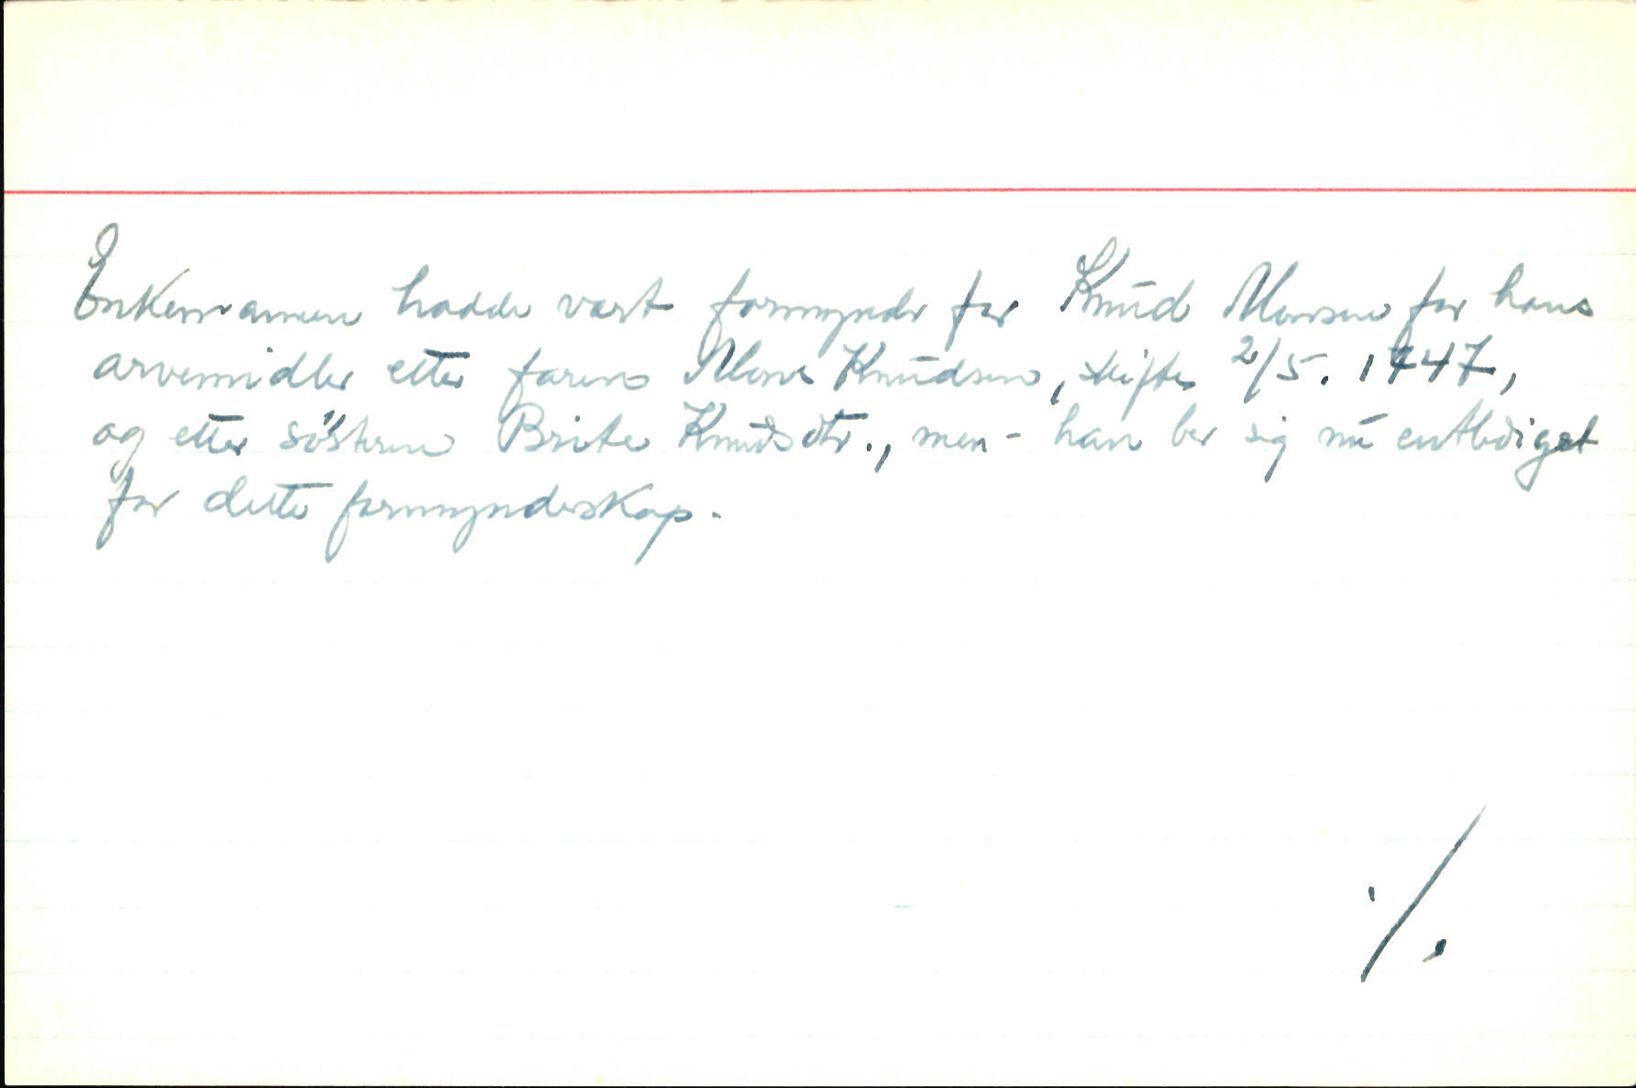 Enkemannen hadde vært formynder for Knud Monsen for hans
arvemidler etter faren Mons Knudsen, skiftet 2/5. 1747,
og etter søsteren Brite Knudsdtr., men - han ber sig nu entlediget
for dette formynderskap.
./.